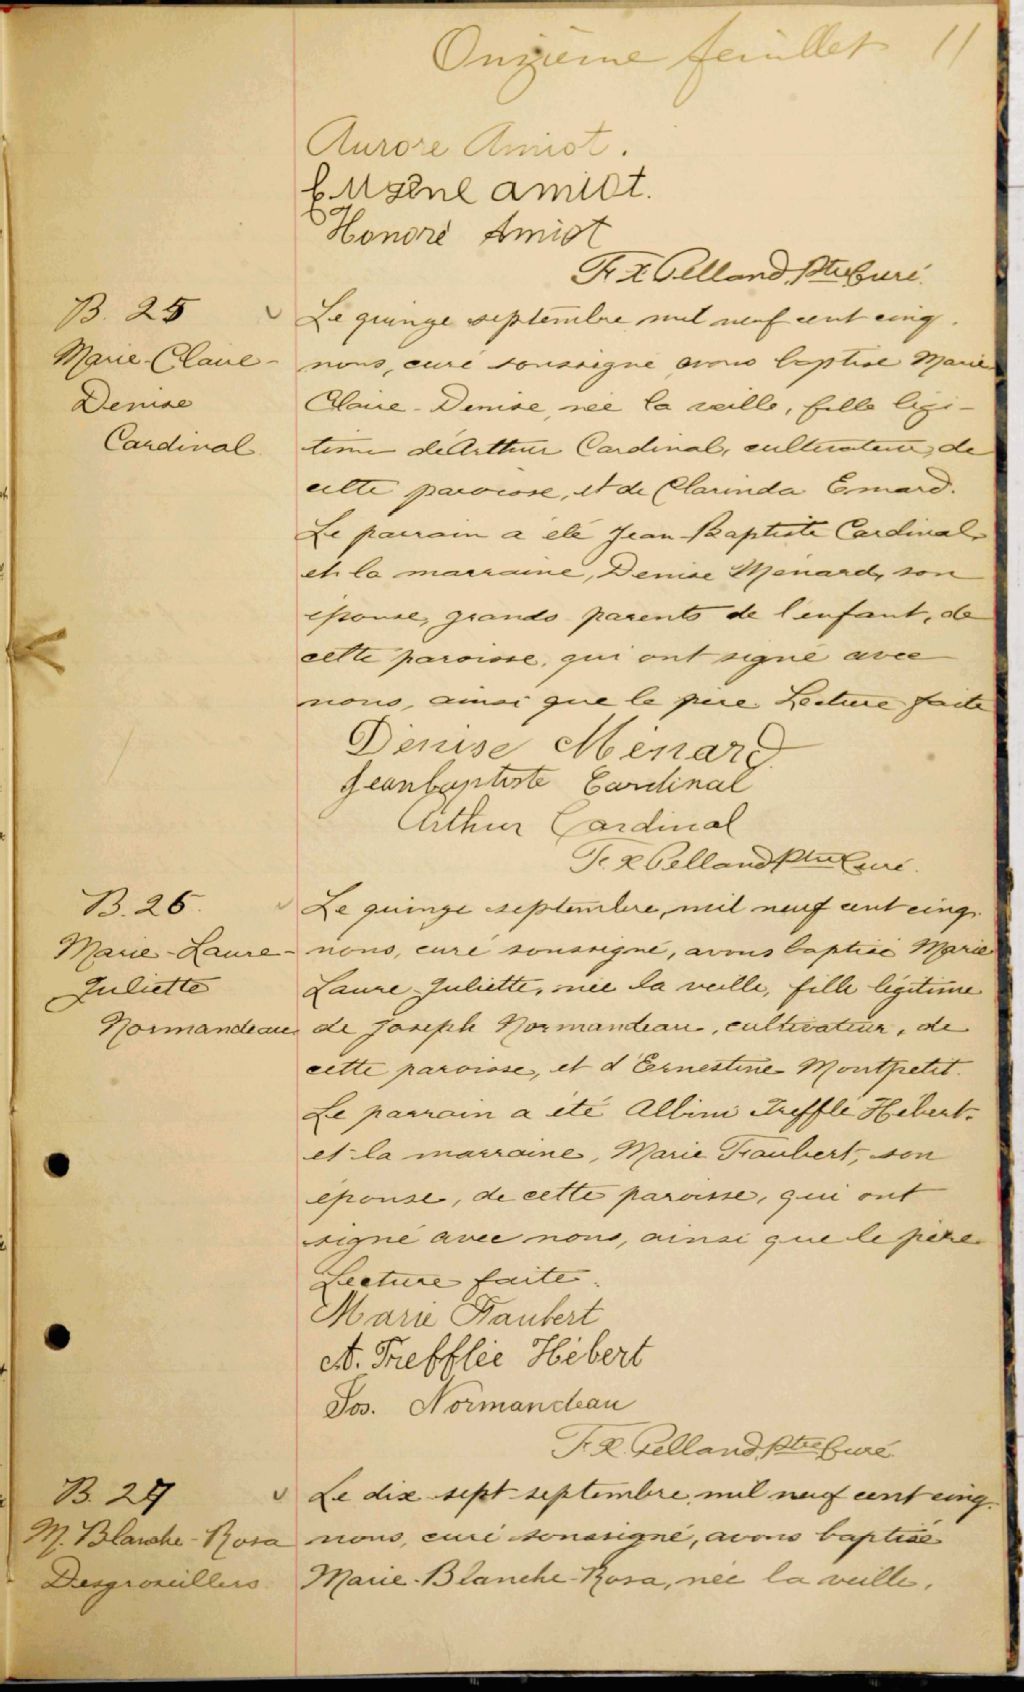 Onzième feuillet 11
Aurore Amiot.
Eugène Amiot.
Honoré Amiot
F X Pelland, Ptre Curé.
B. 25
Marie-Claire-
Denise
Cardinal
Le quinze septembre mil neuf cent cinq.
nous, curé soussigné avons baptisé Marie
Claire-Denise, née la veille, fille légi-
time d'Arthur Cardinal, cultivateur, de
cette paroisse, et de Clarinda Emard.
Le parrain a été Jean-Baptiste Cardinal,
et la marraine, Denise Ménard, son
épouse, grands parents de l'enfant, de
cette paroisse, qui ont signé avec
nous, ainsi que le père. Lecture faite
Denise Ménard
Jeanbaptiste Cardinal
Arthur Cardinal
F. X Pelland Ptre Curé.
B. 26.
Marie-Laure-
Juliette
Normandeau
Le quinze septembre, mil neuf cent cinq.
nous, curé soussigné, avons baptisé Marie
Laure-Juliette, née la veille, fille légitime
de Joseph Normandeau, cultivateur, de
cette paroisse, et d'Ernestine Montpetit.
Le parrain a été Albini Trefflé Hébert,
et la marraine, Marie Faubert, son
épouse, de cette paroisse, qui ont
signé avec nous, ainsi que le père
Lecture faite.
Marie Faubert
A. Trefflée Hébert
Jos. Normandeau
F. X. Pelland, Ptre Curé.
B. 27
M. Blanche-Rosa
Desgroseillers
Le dix sept septembre, mil neuf cent cinq.
nous, curé soussigné, avons baptisé
Marie-Blanche-Rosa, née la veille,